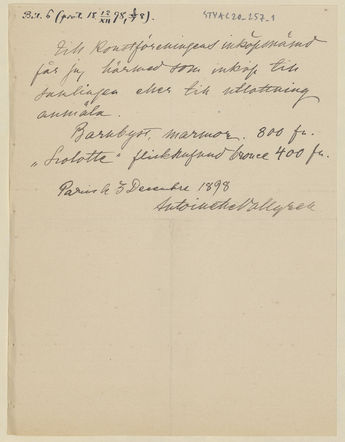 Bil. 6 (prot. 18 13/XII 98, § 8).
STYAC20-257.1
Till Konstföreningens inköpsnämd
får jag härmed som inköp till
samlingen eller till utlottning
anmäla.
Barnbyst, marmor. 800 fr.
„ " flickhufvud bronce 400 fr.
Paris le 3 Decembre 1898
Antoinette Vallgren